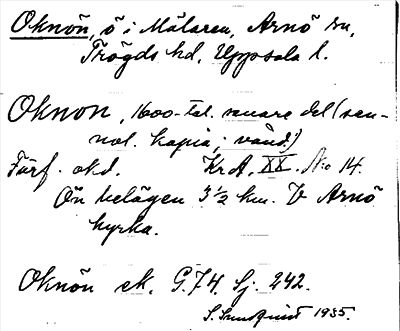 Oknön, ö i Mälaren, Arnö sn,
Trögds hd, Uppsala l.
Oknon, 1600-tal. senare del (sen-
not. kopia; vänd!)
Förf. okd. KrA. XX. No 14.
Ön belägen 3 1/2 km. V Arnö
kyrka.
Oknön ek. G. 74. Sj. 242.
S. Sundquist 1935.